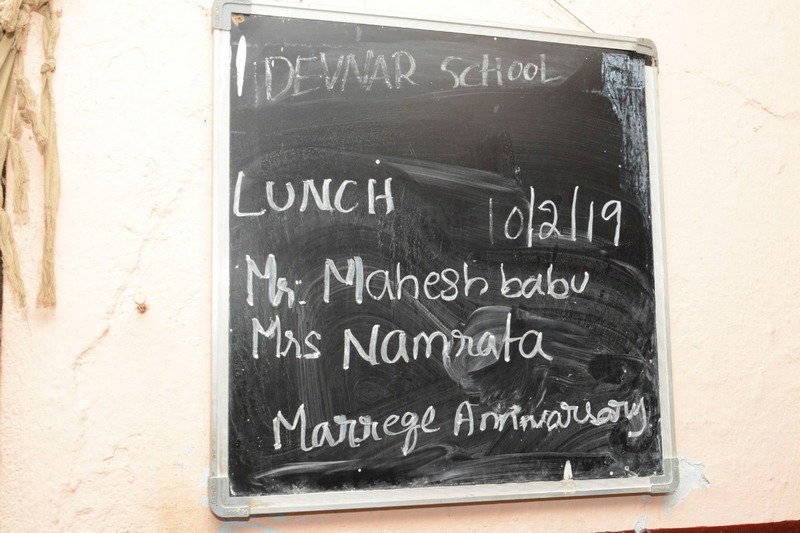 DEVNAR SCHOOL
LUNCH 10/2/19
Mr. Mahesh babu
Mrs Namrata
Marrege Annivarsary